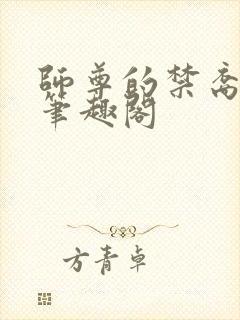 師尊的禁脔
筆趣閣
方青卓